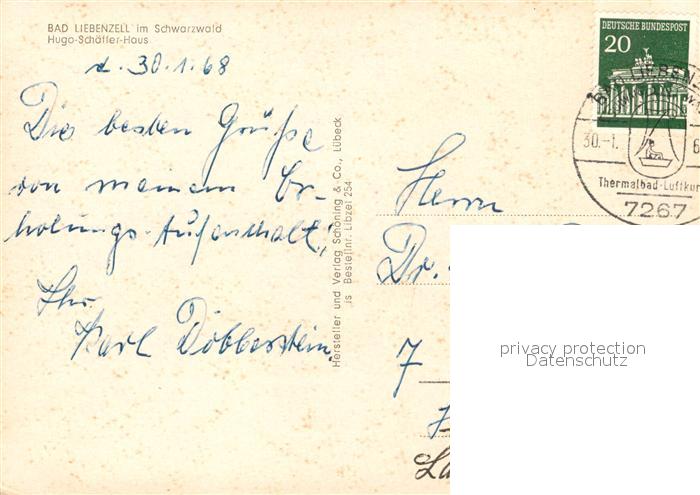 BAD LIEBENZELL im Schwarzwald
Hugo-Schäffer-Haus
d. 30.1.68
Die besten Grüße
von meinem Er-
holungs-Aufenthalt,
Ihr
Karl Döbberstein.
Hersteller und Verlag Schöning & Co., Lübeck
is Bestellnr. Libzel 254
DEUTSCHE BUNDESPOST
20
BAD LIEBENZ
30.-1. 6
Thermalbad-Luftkur
7267
Herrn
Dr.
7
privacy protection
Datenschutz